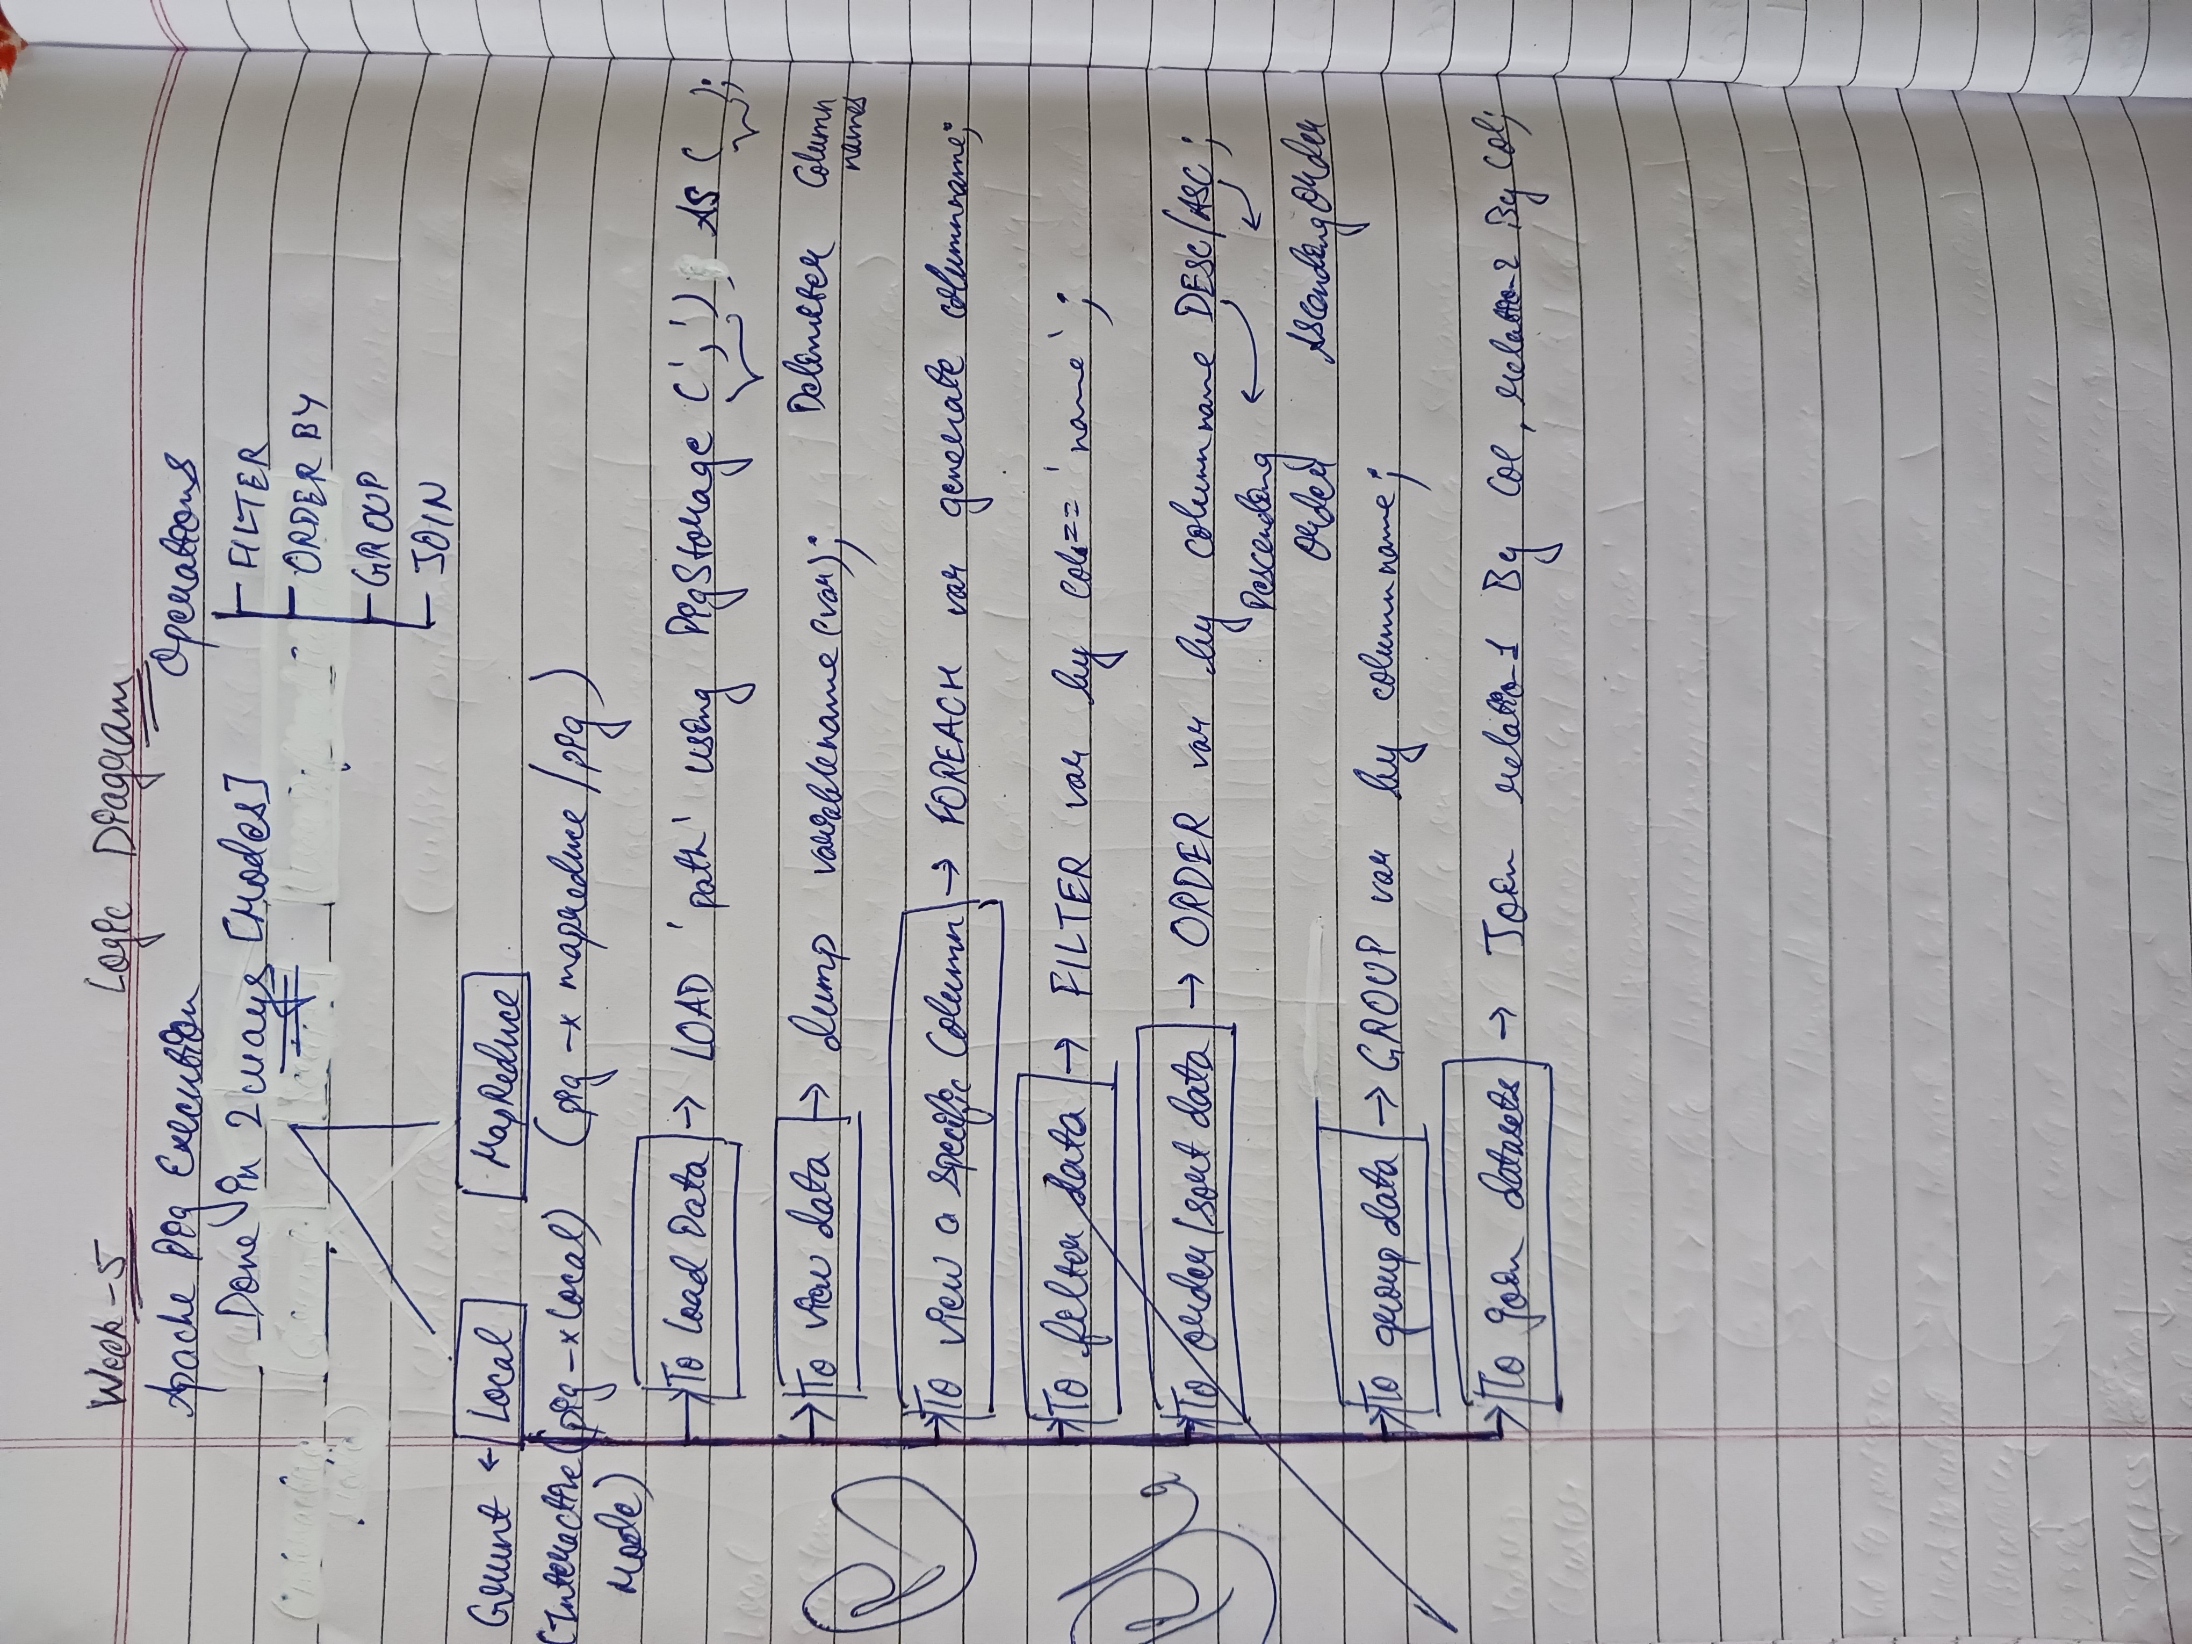 Week-5 Logic Diagram
Apache Pig Execution Operations
Done in 2 ways [Modes] FILTER
ORDER BY
GROUP
JOIN
Grunt ← Local MapReduce
(Interactive (pig -x local) (pig -x mapreduce/pig)
Mode)
To load Data → LOAD 'path' using PigStorage (',') AS ( );
To view data → dump variablename(var); Delimiter Column
names
To view a specific Column → FOREACH var generate columnname;
To filter data → FILTER var by col== 'name';
To order/sort data → ORDER var by columnname DESC/ASC;
Descending
Order Ascending Order
To group data → GROUP var by columnname;
To join datasets → Join relation1 By Col, relation2 By Col;